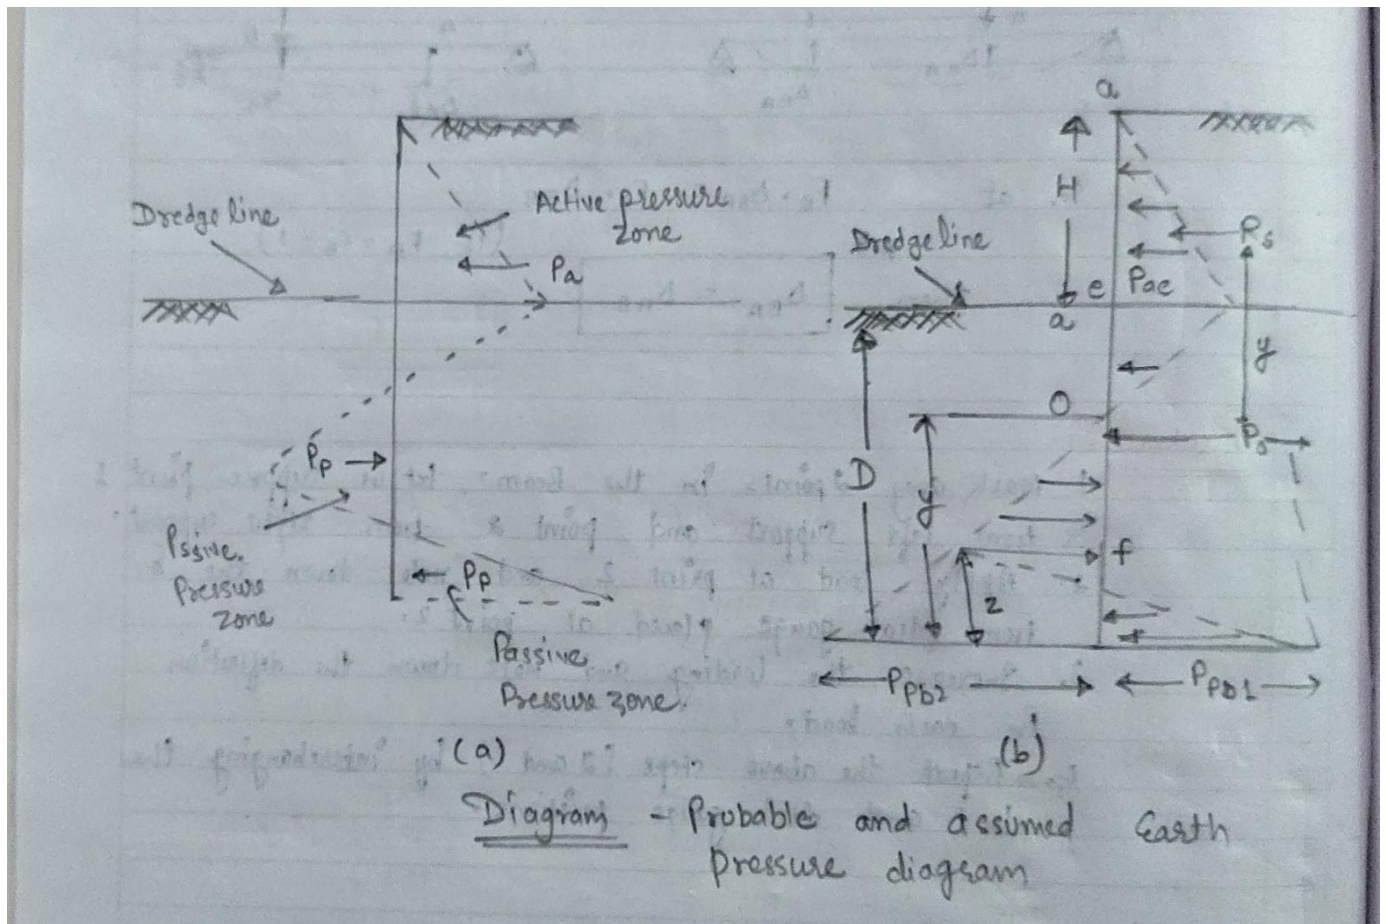 Dredge line
Active pressure
zone
Pa
Pp
Pssive
Pressure
zone
Pp
Passive
Pressure zone.
(a)
a
H
Dredge line
Ps
e
Pae
a
y
O
Ps
D
y
f
z
Ppb2
Ppb1
(b)
Diagram - Probable and assumed Earth
pressure diagram